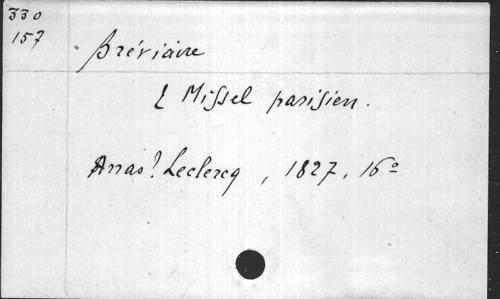 330
157
Bréviaire
& Missel parisien.
Arras? Leclercq, 1827, 16º